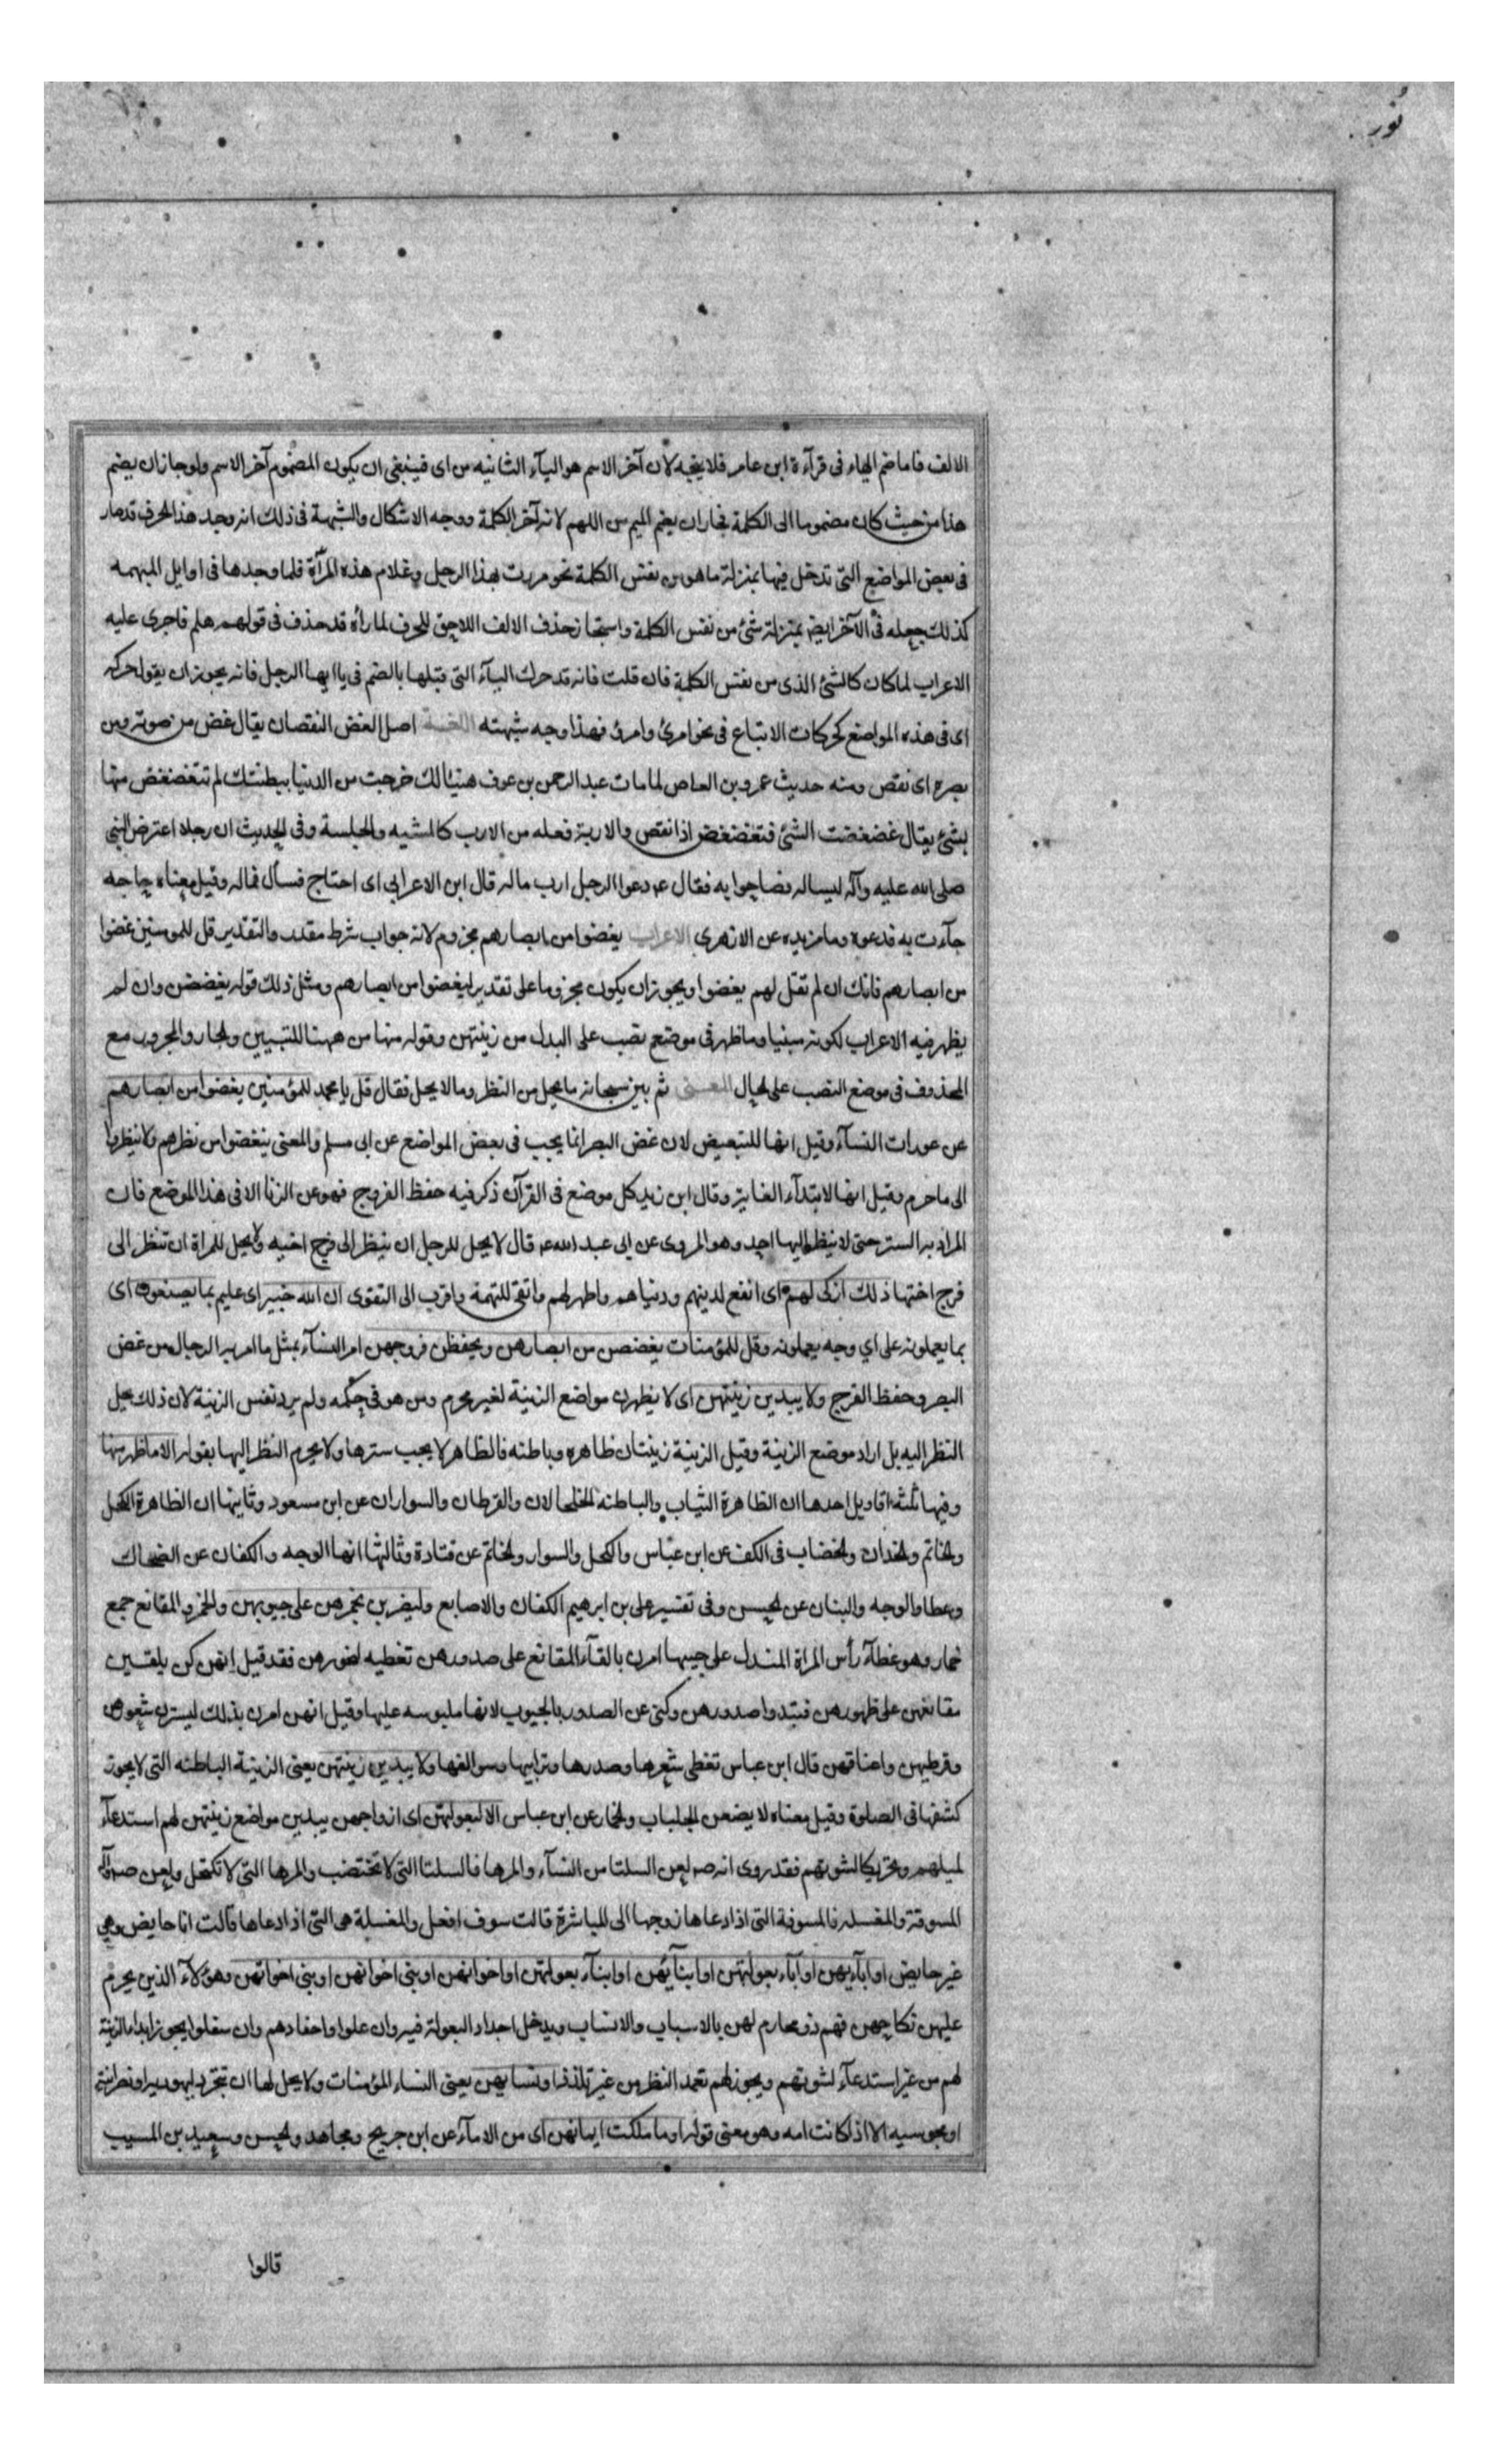 نور
الالف فاما ضم الهاء فى قرآءة ابن عامر فلا يتجه لان آخر الاسم هو اليآء الثانيه من اى فينبغى ان يكون المضموم آخر الاسم ولو جاز ان يضم
هذا من حيث كان مضموما الى الكلمة لجاز ان يضم الميم من اللهم لانه آخر الكلمة ووجه الاشكال والشبهة فى ذلك انه وجد هذا الحرف قد صار
فى بعض المواضع التى تدخل فيها بمنزلة ما هو من نفس الكلمة نحو مررت بهذا الرجل وغلام هذه المرأة فلما وجدها فى اوايل المبهمه
كذلك جعله فى الآخر ايضا بمنزلة شئ من نفس الكلمة واستجاز حذف الالف اللاحق للحرف لما رأه قد حذف فى قولهم هلم فاجرى عليه
الاعراب لما كان كالشئ الذى من نفس الكلمة فان قلت فانه قد حرك اليآء التى قبلها بالضم فى يا ايها الرجل فانه يجوز ان يقول حركه
اى فى هذه المواضع كحركات الاتباع فى نحو امرئ وامرئ فهذا وجه شبهته اللغـة اصل الغض النقصان يقال غض من صوته ومن
بصره اى نقص ومنه حديث عمرو بن العاص لما مات عبد الرحمن بن عوف هنيئا لك خرجت من الدنيا ببطنتك لم تتغضغض منها
بشئ يقال غضغضت الشئ فتغضغض اذا نقص والاربة فعله من الارب كالمشيه والجلسة وفى الحديث ان رجلا اعترض النبى
صلى الله عليه وآله ليساله فصاحوا به فقال ع دعوا الرجل ارب ماله قال ابن الاعرابي اى احتاج فسأل فماله وقيل معناه حاجه
جآءت به فدعوه وما مزيده عن الازهرى الاعراب يغضوا من ابصارهم مجزوم لانه جواب شرط مقدر والتقدير قل للمومنين غضوا
من ابصارهم فانك ان لم تقل لهم يغضوا ويجوز ان يكون مجزوما على تقدير ليغضوا من ابصارهم ومثل ذلك قوله يغضضن وان لم
يظهر فيه الاعراب لكونه مبنيا وما ظهر فى موضع نصب على البدل من زينتهن وقوله منها من ههنا للتبيين والجار والمجرور مع
المحذوف فى موضع النصب على الحال المعنى ثم بين سبحانه ما يحل من النظر وما لا يحل فقال قل يا محمد للمؤمنين يغضوا من ابصارهم
عن عورات النسآء وقيل انها للتبعيض لان غض البصر انما يجب فى بعض المواضع عن ابى مسلم والمعنى ينغضوا من نظرهم ولا ينظروا
الى ما حرم وقيل انها لابتدآء الغاية وقال ابن زيد كل موضع فى القرآن ذكر فيه حفظ الفروج فهو عن الزنا الا فى هذا الموضع فان
المراد به الستر حتى لا ينظر اليها احد وهو المروى عن ابى عبد الله ع قال لا يحل للرجل ان ينظر الى فرج اخيه ولا يحل للمراة ان تنظر الى
فرج اختها ذلك ازكى لهم اى انفع لدينهم ودنياهم واطهر لهم واتقى للتهمة واقرب الى التقوى ان الله خبير اى عليم بما يصنعون اى
بما يعملونه على اي وجه يعملونه وقل للمؤمنات يغضضن من ابصارهن ويحفظن فروجهن امر النسآء بمثل ما امر به الرجال من غض
البصر وحفظ الفرج ولا يبدين زينتهن اى لا يظهرن مواضع الزينة لغير محرم ومن هو فى حكمه ولم يرد نفس الزينة لان ذلك يحل
النظر اليه بل اراد موضع الزينة وقيل الزينة زينتان ظاهره وباطنه فالظاهر لا يجب سترها ولا يحرم النظر اليها بقوله الا ما ظهر منها
وفيها ثلثه اقاويل احدها ان الظاهرة الثياب والباطنه الخلخالان والقرطان والسواران عن ابن مسعود وثانيها ان الظاهرة الكحل
والخاتم والخدان والخضاب فى الكف عن ابن عباس والكحل والسوار والخاتم عن قتادة وثالثها انها الوجه والكفان عن الضحاك
وعطا والوجه والبنان عن الحسن وفى تفسير على بن ابرهيم الكفان والاصابع وليضربن بخمرهن على جيوبهن والخمر المقانع جمع
خمار وهو غطآء رأس المراة المنسدل على جيبها امرن بالقآء المقانع على صدورهن تغطيه لنحورهن فقد قيل انهن كن يلقين
مقانعهن على ظهورهن فتبدوا صدورهن وكنى عن الصدور بالجيوب لانها ملبوسه عليها وقيل انهن امرن بذلك ليسترن شعورهن
وقرطيهن واعناقهن قال ابن عباس تغطى شعرها وصدرها وترايبها وسوالفها ولا يبدين زينتهن يعنى الزينة الباطنه التى لا يجوز
كشفها فى الصلوة وقيل معناه لا يضعن الجلباب والخمار عن ابن عباس الا لبعولتهن اى ازواجهن يبدين مواضع زينتهن لهم استدعآء
لميلهم وتحريكا لشهوتهم فقد روى انه ص لعن السلتا من النسآء والمرها فالسلتا التى لا تختضب والمرها التى لا تكتحل ولعن ص
المسوفة والمغسله فالمسوفة التى اذا دعاها زوجها الى المباشرة قالت سوف افعل والمغسلة هى التى اذا دعاها قالت انا حايض وهى
غير حايض او آبآءيهن او آبآء بعولتهن او ابنآئهن او ابنآء بعولتهن او اخوانهن او بنى اخوانهن او بنى اخواتهن وهؤلآء الذين يحرم
عليهن نكاحهن فهم ذو محارم لهن بالاسباب والانساب ويدخل اجداد البعولة فيه وان علوا واحفادهم وان سفلوا يجوز ابداء الزينة
لهم من غير استدعآء لشهوتهم ويجوز لهم تعمد النظر من غير تلذذ او نسايهن يعنى النساء المؤمنات ولا يحل لها ان تتجرد ليهوديه او نصرانية
او مجوسيه الا اذا كانت امه وهو معنى قوله او ما ملكت ايمانهن اى من الامآء عن ابن جريج ومجاهد والحسن وسعيد بن المسيب
قالوا